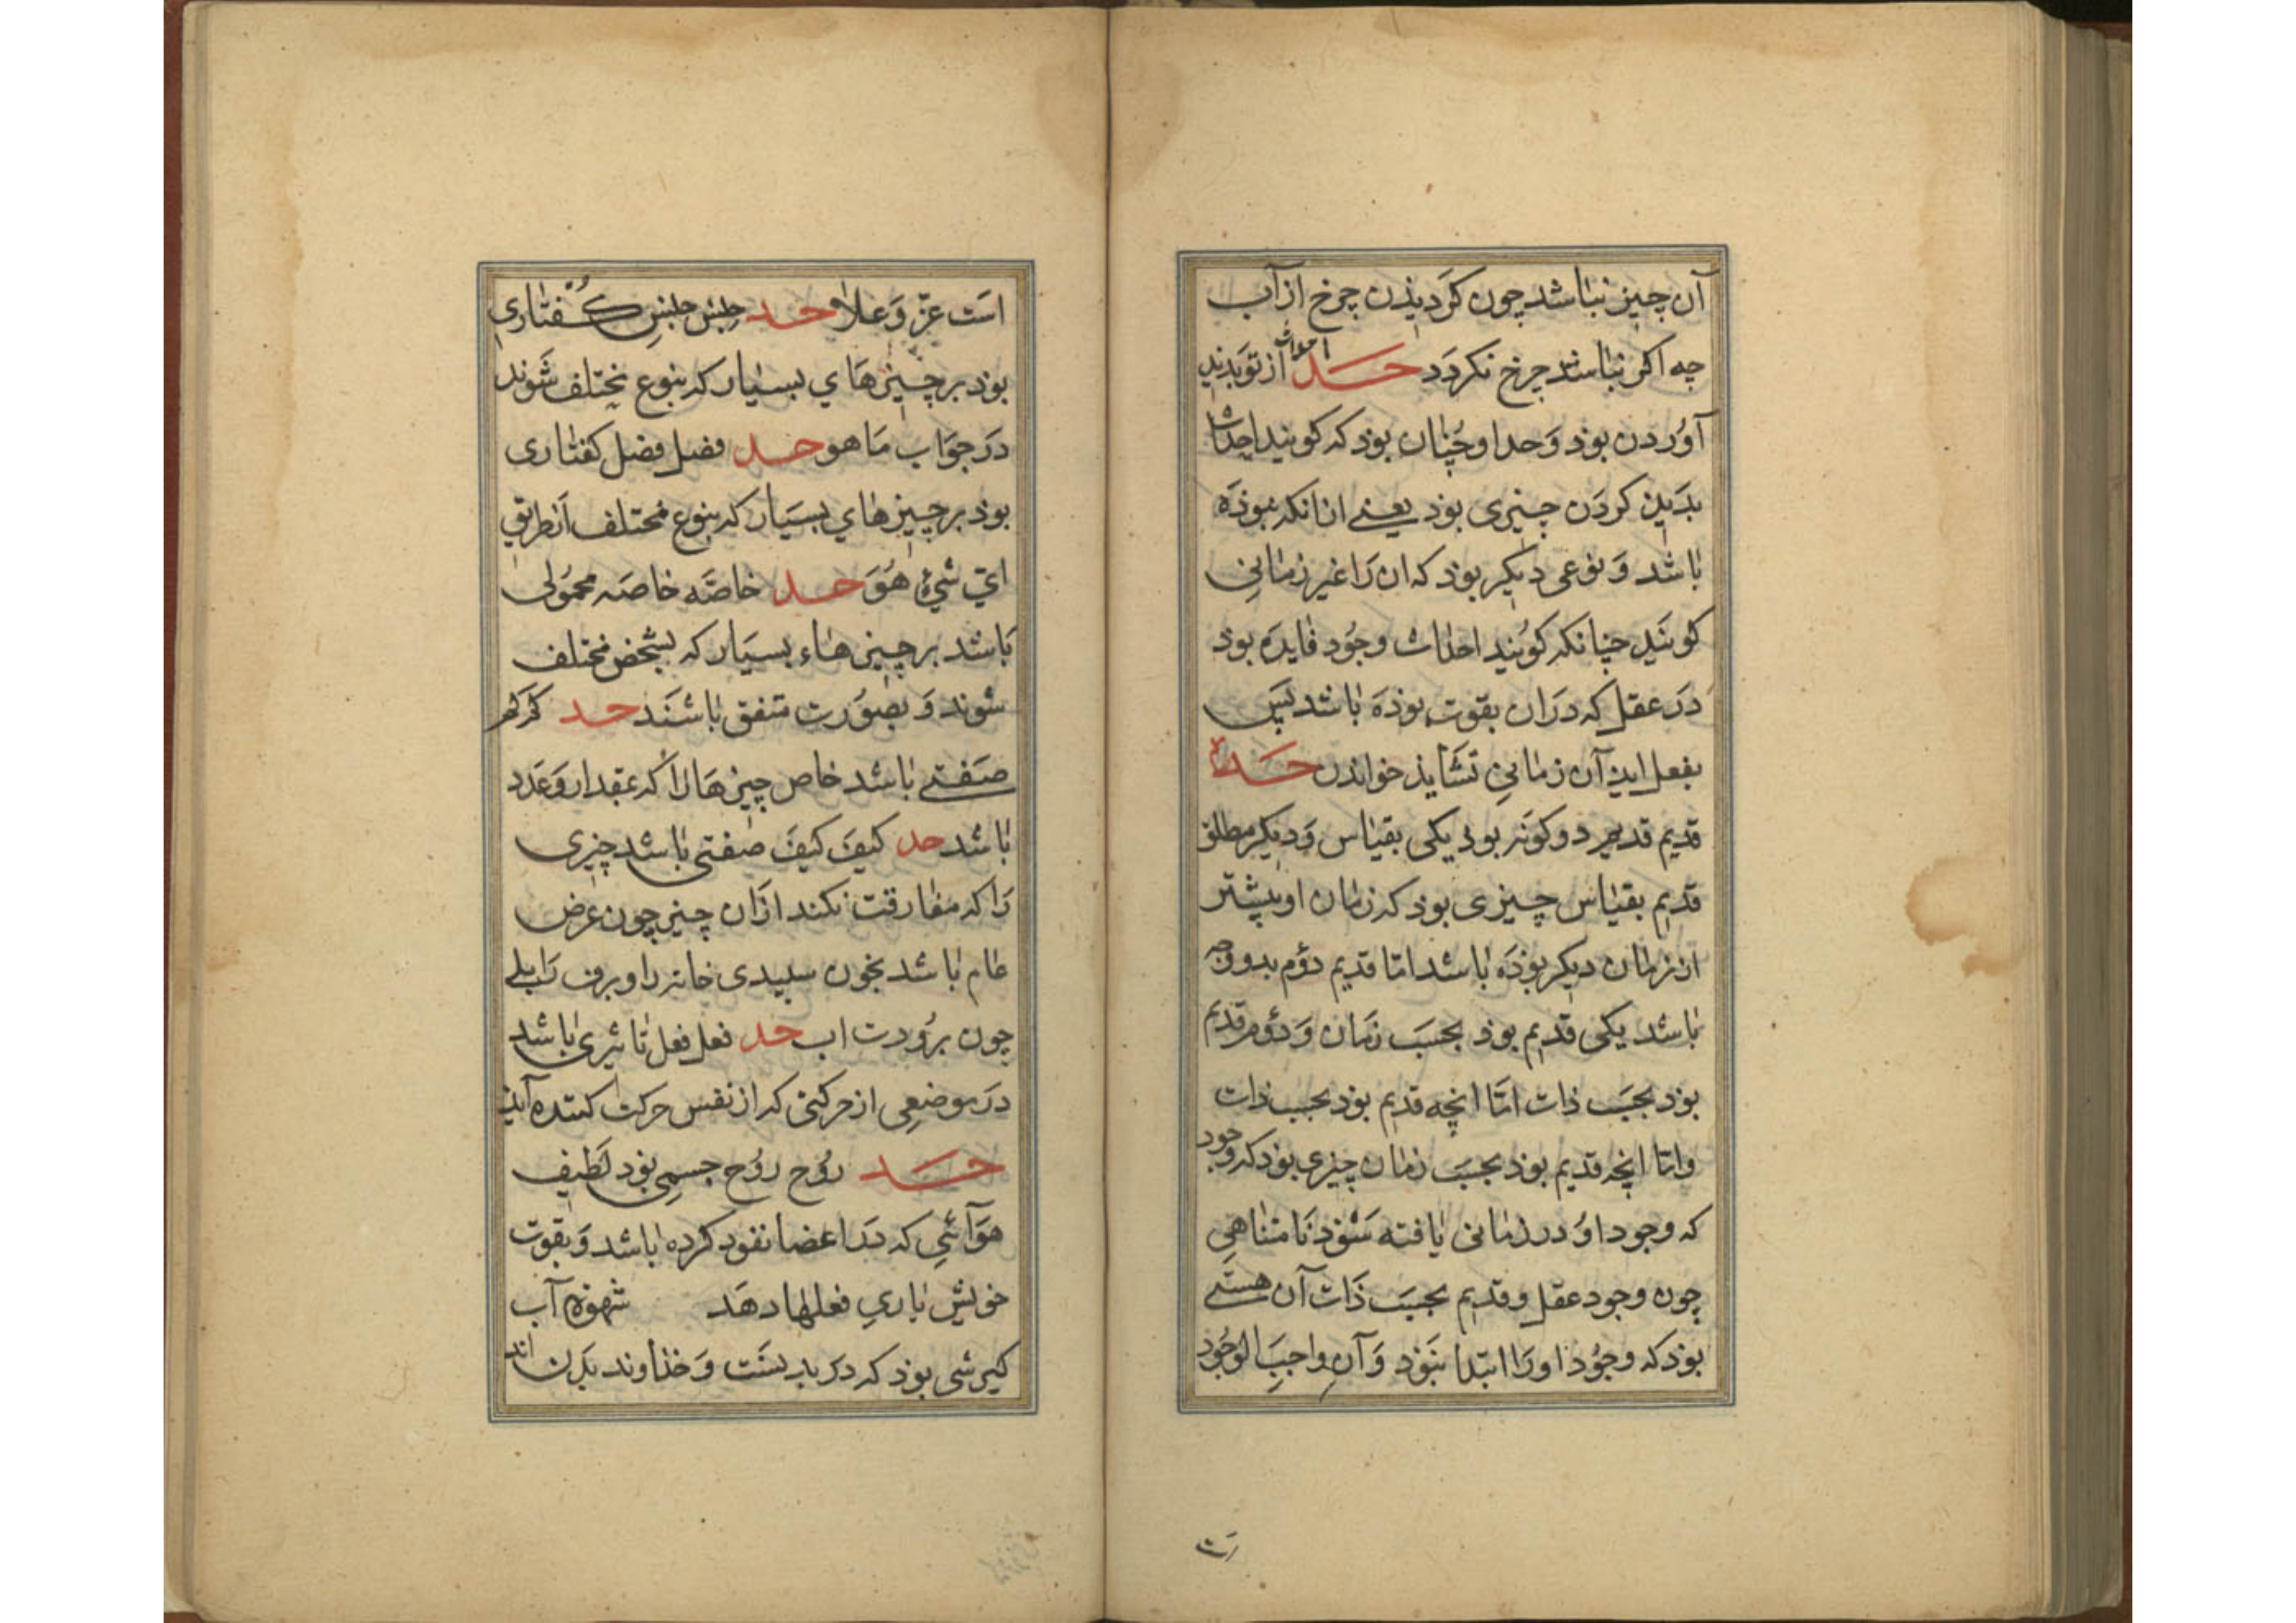 آن چیز نباشد چون کردیذن چرخ از آب
چه اکر نباشد چرخ نکردد حد احداث از نو پدید
آوردن بوذ وحد او چنان بوذ که کویند احداث
بدین کردن چیزی بوذ یعنی از انکه نبوذه
باشد و نوعی دیکر بوذ که ان را غیر زمانی
کویند چنانکه کویند احداث وجود فایده بوذ
در عقل که دران بقوت بوذه باشد پس
بفعل این آن زمانی نشایذ خواندن حد
قدیم قدیم دو کونه بوذ یکی بقیاس و دیکر مطلق
قدیم بقیاس چیزی بوذ که زمان او پیشتر
از زمان دیکر بوذه باشد امّا قدیم دوّم بدو وجه
باشد یکی قدیم بوذ بحسب زمان و دوّم قدیم
بوذ بحسب ذات امّا انچه قدیم بوذ بحسب ذات
وامّا انچه قدیم بوذ بحسب زمان چیزی بوذ که وجود
که وجود او در زمانی یافته شوذ نامتناهی
چون وجود عقل و قدیم بحسب ذات آن هستی
بوذ که وجود او را ابتدا نبوذ و آن واجب الوجود
است عزّ وعلا و حد جنس جنس کفتاری
بوذ بر چیزهای بسیار که بنوع مختلف شوند
در جواب ما هو حد فصل فصل کفتاری
بوذ بر چیزهای بسیار که بنوع مختلف از طریق
ایّ شیء هو حد خاصّه خاصه محمولی
باشد بر چیزهاء بسیار که بشخص مختلف
شوند و بصورت متفق باشند حد کم کم
صفتی باشد خاص چیزها را که بمقدار وعدد
باشد حد کیف کیف صفتی باشد چیزی
را که مفارقت نکند ازان چیز چون عرض
عام باشد بچون سپیدی خانه را و برف را بلی
چون برودت اب حد فعل فعل تاثیری باشد
در موضعی از حرکتی که از نفس حرکت کننده آید
حد روح روح جسمی بوذ لطیف
هوآئی که در اعضا نفوذ کرده باشد و بقوت
خویش یاری فعلها دهد شهوة آب
بوذ که در بدنست و خذاوند بدن